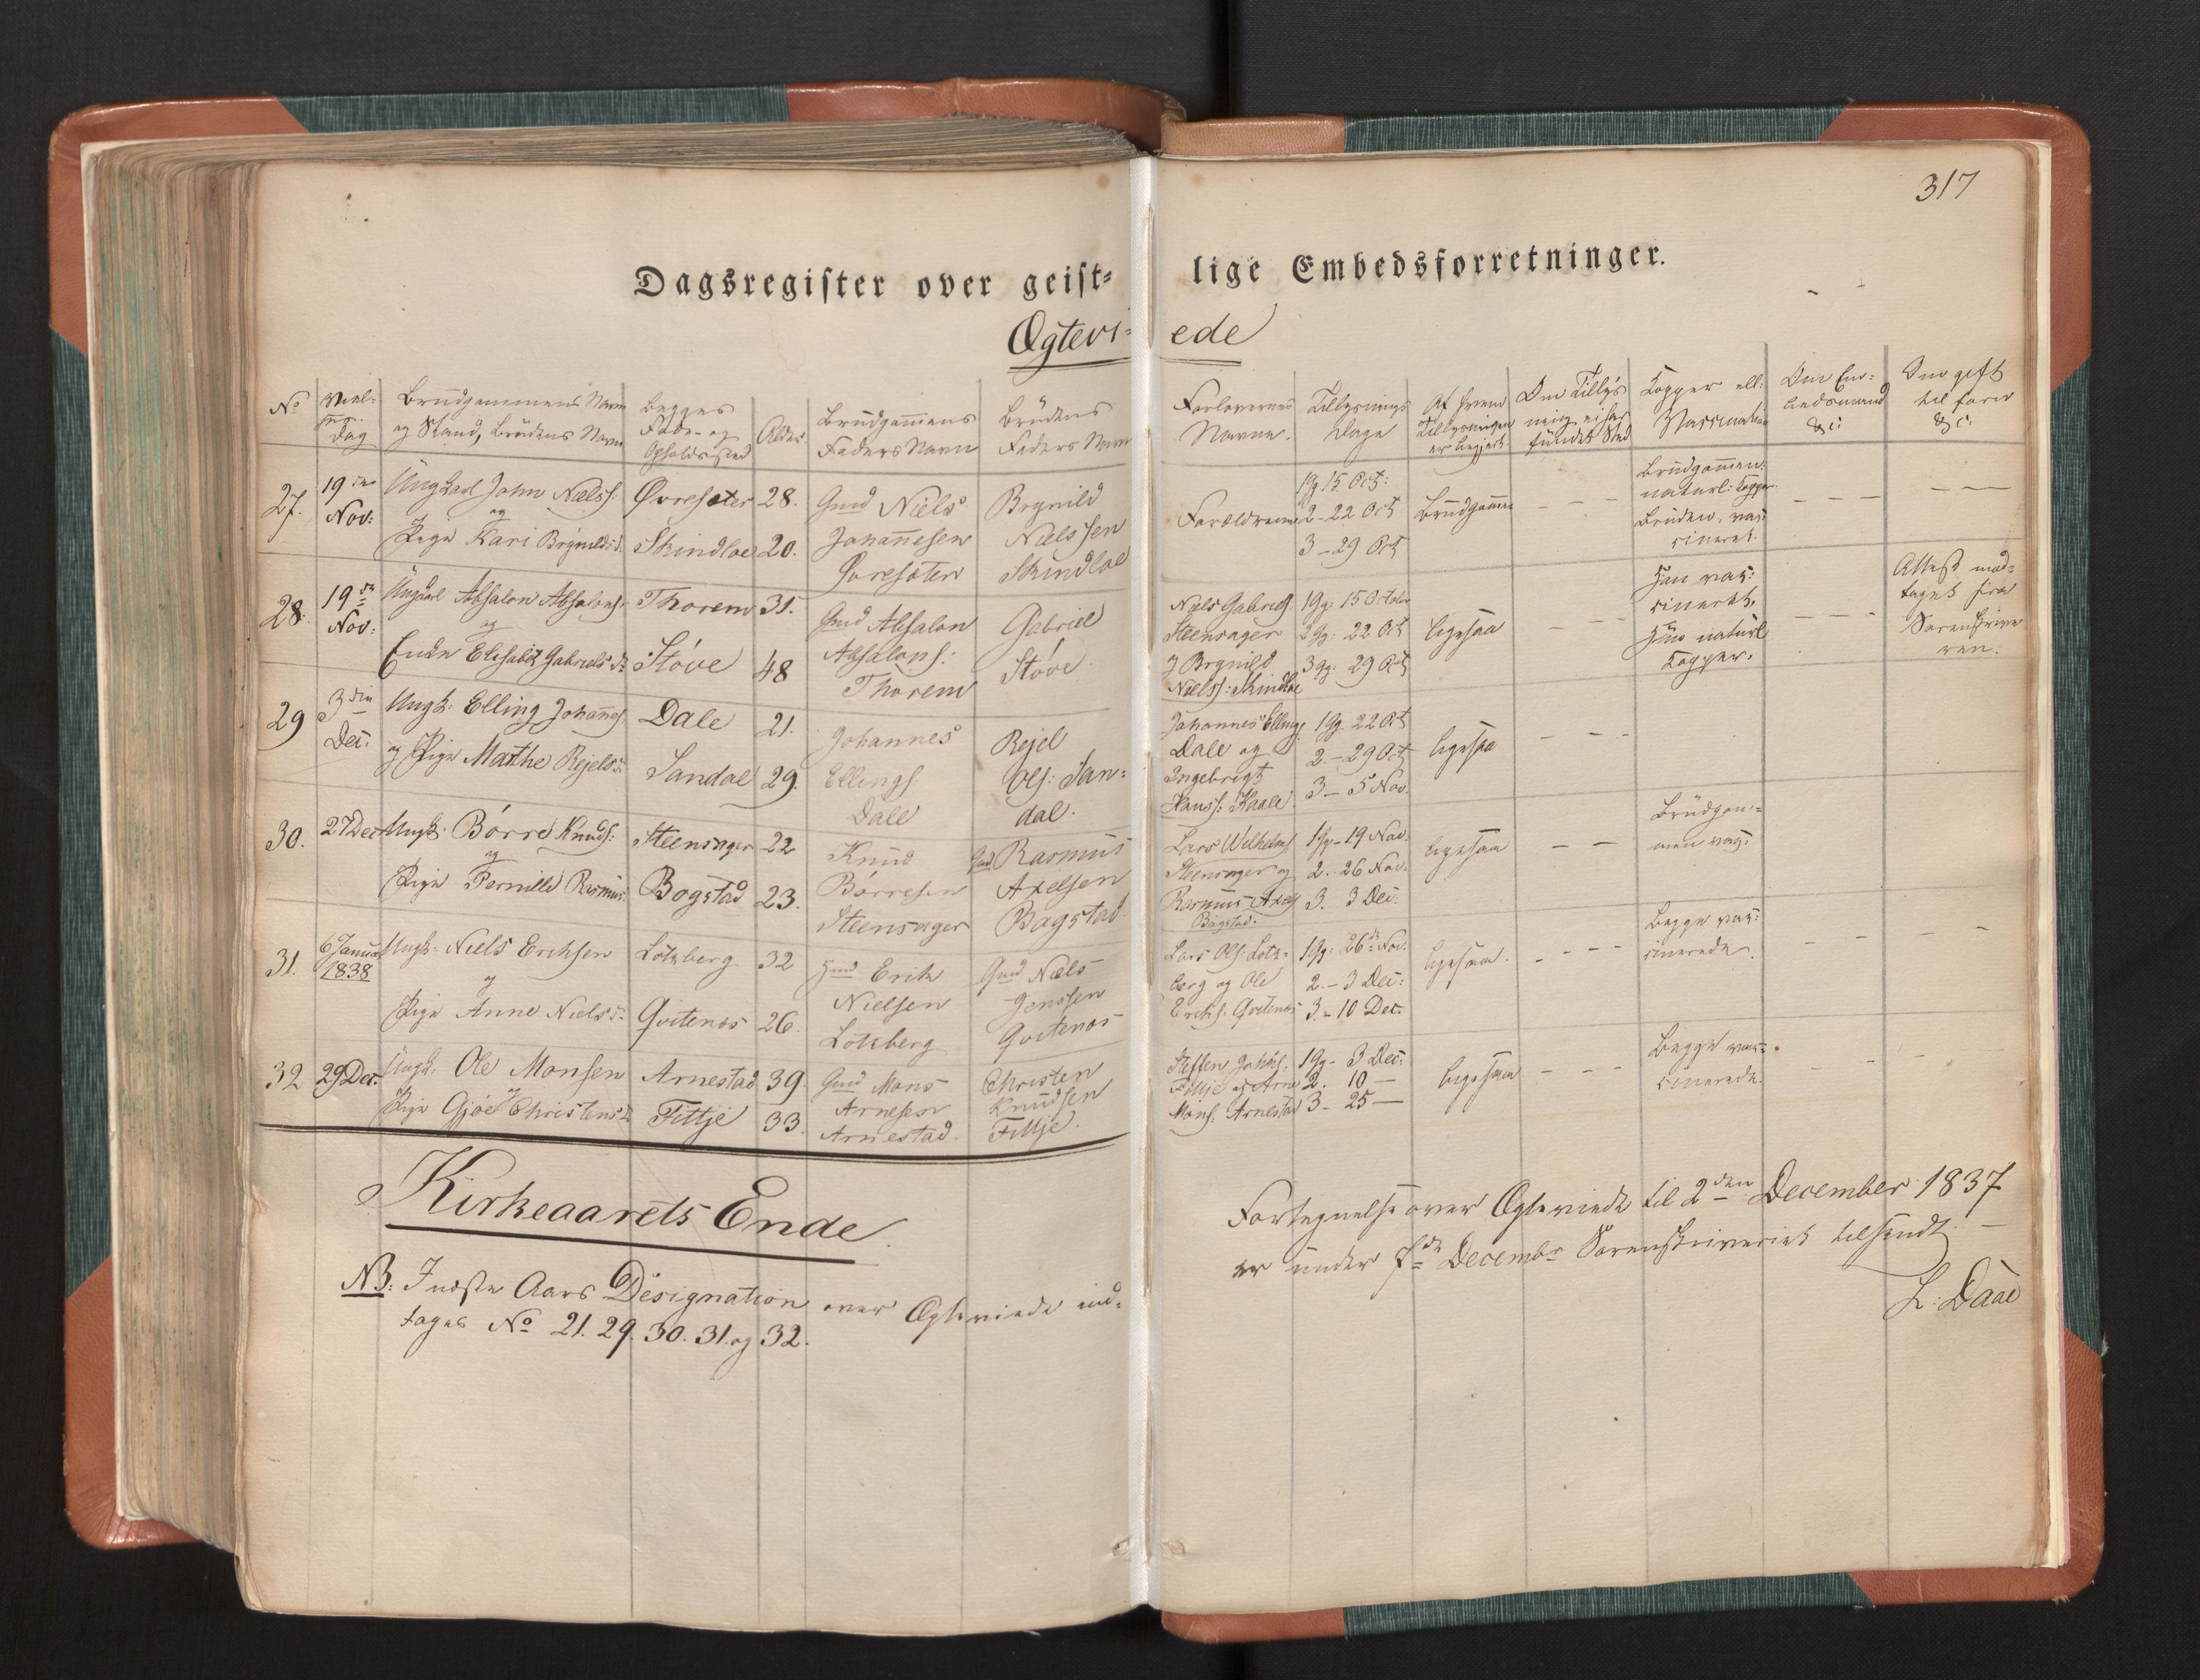 317
Dagsregister over geist=
lige Embedsforretninger.
Ægtevi=
ede
No
Viel-
ses-
Dag
Brudgommens Navn
og Stand, Brudens Navn
Begges
Føde- og
Opholdssted
Alder
Brudgom̄ens
Faders Navn
Brudens
Faders Navn
Forlovernes
Navne.
Tillysnings
Dage
Af hvem
Tillysningen
er begjert
Om Tillys
ning ei har
fundet Sted
Kopper ell:
Vaccination
Om Enr-
&c:
Om gift
til forn
&c:
27.
19de
Nov:
Ungkarl John Nælss:
og
Pige Kari Brynilds d.
Øvresæter
Skindloe
28.
20.
Gmd Niels
Johan̄esen
Øvresæter
Brynild
Nælssen
Skindloe
Forældrene
1g. 15 Oct:
2 - 22 Oct
3 - 29 Oct
Brudgom̄en
Brudgom̄en
naturl: Kopper
Bruden. vac:
cineret.
28.
19de
Nov:
Ungkarl Absalon Absalons.
og
Enke Elisabet Gabriels d.
Thorem
Støve
31.
48
Gmd Absalon
Absalons:
Thorem
Gabriel
Støve
Niels Gabriels
Steensager
og Brynild
Nælss: Skindloe
1g. 15 October
2g: 22 Oct
3g: 29 Oct
ligesaa
Han vac:
cineret,
Hun naturl
Kopper.
Attest mod=
taget fra
Sorenskrive
ren.
29
3die
Dec:
Ungk: Elling Johan̄es.
og Pige Marthe Rejels d.
Dale
Sandal
21.
29.
Johannes
Ellings.
Dale
Rejel
Ols: San=
dal.
Johannes Ellings.
Dale og
Ingebrigt
Hanss: Haale
1g. 22 Oct
2. - 29 Oct
3 - 5 Nov.
ligesaa
30.
27 Dec
Ungk: Børre Knuds:
og
Pige Pernille Rasmus
Steensager
Bogstad
22
23.
Knud
Børresen
Steensager
Gmd. Rasmus
Axelsen
Bagstad
Lars Wilhelms
Steensager og
Rasmus Axels
Bagstad.
1g. - 19 Nov.
2. - 26 Nov.
3. 3 Dec.
ligesaa
Brudgom=
men vac:
31.
6 Januar
1838
Ungk. Niels Eriksen
og
Pige Anne Niels d.
Lotsberg
Qvitenes
32
26.
Gmd Erik
Nielsen
Lotsberg
Gmd Næls
Jenssen
Qvitenes
Lars Ols. Lots-
berg og Ole
Eriks. Qvitenes
1g. 26de Nov.
2. - 3 Dec:
3. - 10 Dec.
ligesaa.
Begge vac:
cinerede.
32
29 Dec.
Ungk. Ole Monsen
og
Pige Gjøe Christens d.
Arnestad
Fittje
39.
33.
Gmd Mons
Arnesen
Arnestad.
Christen
Knudsen
Fittje.
Steffen Johns.
Fittje og Arne
Mons. Arnestad
1g. 3 Dec:
2. 10 —
3 - 25 —
ligesaa
Begge vac:
cinerede.
Kirkeaarets Ende.
NB: I næste Aars Designation over Ægteviede ind=
tages No 21. 29. 30. 31. og 32.
Fortegnelse over Ægteviede til 2den December 1837
er under 7de Decembr Sorenskriveriet tilsendt. —
L: Daae